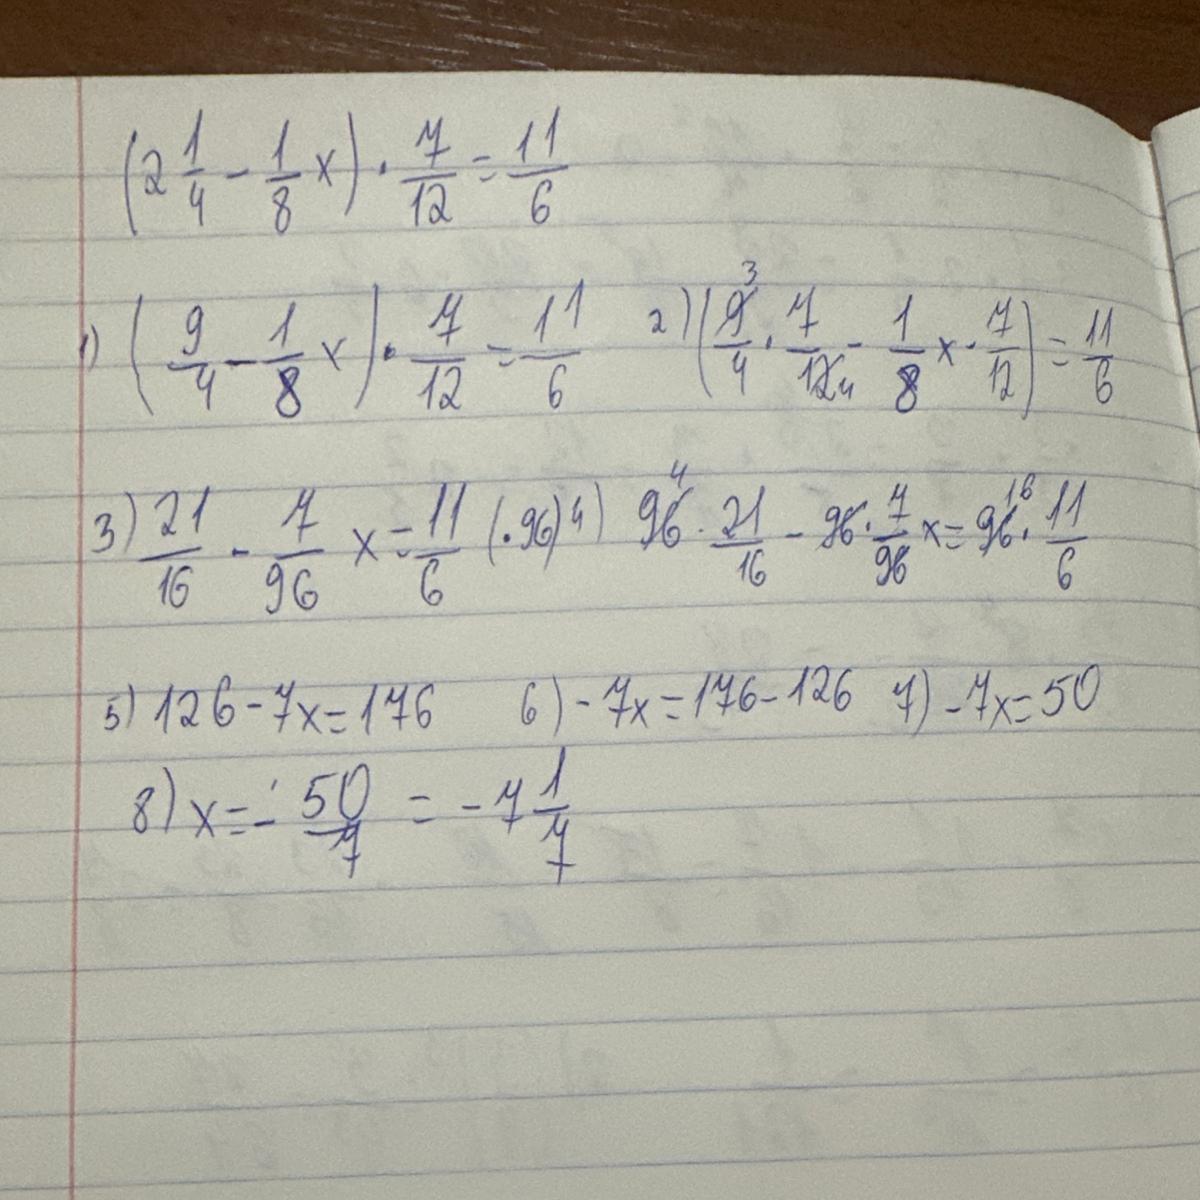 (2 1/4 - 1/8 x) · 7/12 = 11/6
1) (9/4 - 1/8 x) · 7/12 = 11/6 2) (9/4 · 7/12 - 1/8 x · 7/12) = 11/6
3) 21/16 - 7/96 x = 11/6 (·96) 4) 96 · 21/16 - 96 · 7/96 x = 96 · 11/6
5) 126 - 7x = 176 6) - 7x = 176 - 126 7) - 7x = 50
8) x = - 50/7 = - 7 1/7